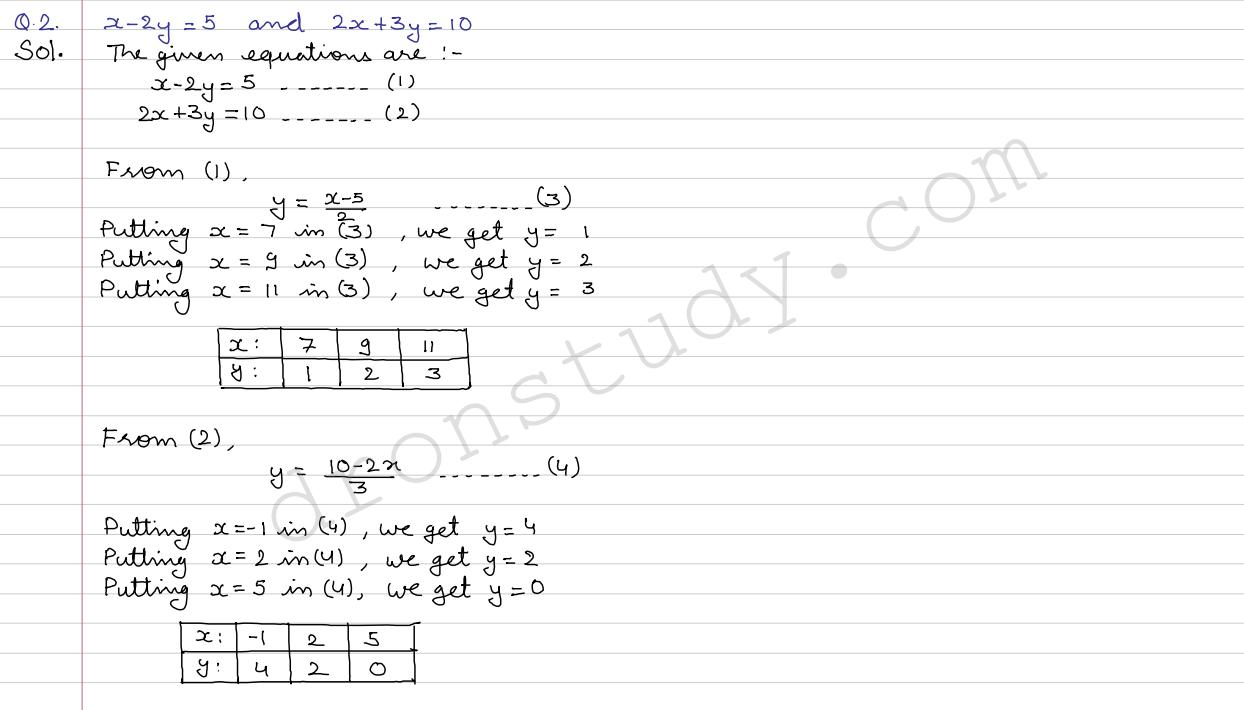 Q.2. x-2y=5 and 2x+3y=10
Sol. The given equations are :-
x-2y=5 ------- (1)
2x+3y=10 ------- (2)
From (1),
y = (x-5)/2 -------- (3)
Putting x = 7 in (3), we get y = 1
Putting x = 9 in (3), we get y = 2
Putting x = 11 in (3), we get y = 3
x: 7 9 11
y: 1 2 3
From (2),
y = (10-2x)/3 --------- (4)
Putting x=-1 in (4), we get y=4
Putting x=2 in (4), we get y=2
Putting x=5 in (4), we get y=0
x: -1 2 5
y: 4 2 0
dronstudy.com